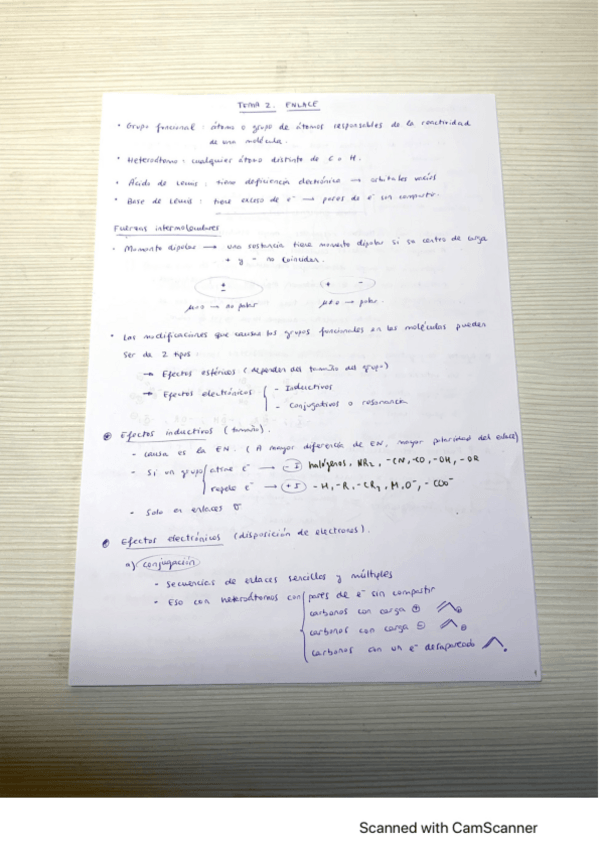 TEMA 2. ENLACE
• Grupo funcional: átomo o grupo de átomos responsables de la reactividad
de una molécula.
• Heteroátomo: cualquier átomo distinto de C o H.
• Ácido de Lewis: tiene deficiencia electrónica → orbitales vacíos
• Base de Lewis: tiene exceso de e⁻ → pares de e⁻ sin compartir.
Fuerzas intermoleculares
• Momento dipolar → una sustancia tiene momento dipolar si su centro de carga
+ y - no coinciden.
± + -
μ=0 → no polar μ≠0 → polar.
• Las modificaciones que causan los grupos funcionales en las moléculas pueden
ser de 2 tipos:
→ Efectos estéricos (dependen del tamaño del grupo)
→ Efectos electrónicos { - Inductivos
- Conjugativos o resonancia
Efectos inductivos (tamaño).
- causa es la EN. (A mayor diferencia de EN, mayor polaridad del enlace)
- Si un grupo { atrae e⁻ → (-I) halógenos, NR₂, -CN, -CO, -OH, -OR
repele e⁻ → (+I) -H, -R, -CR₃, M, O⁻, -COO⁻
- Solo en enlaces σ
Efectos electrónicos (disposición de electrones).
a) conjugación
- Secuencias de enlaces sencillos y múltiples
- Eso con heteroátomos con { pares de e⁻ sin compartir
carbonos con carga ⊕ ⊕
carbonos con carga ⊖ ⊖
carbonos con un e⁻ desapareado .
1
Scanned with CamScanner